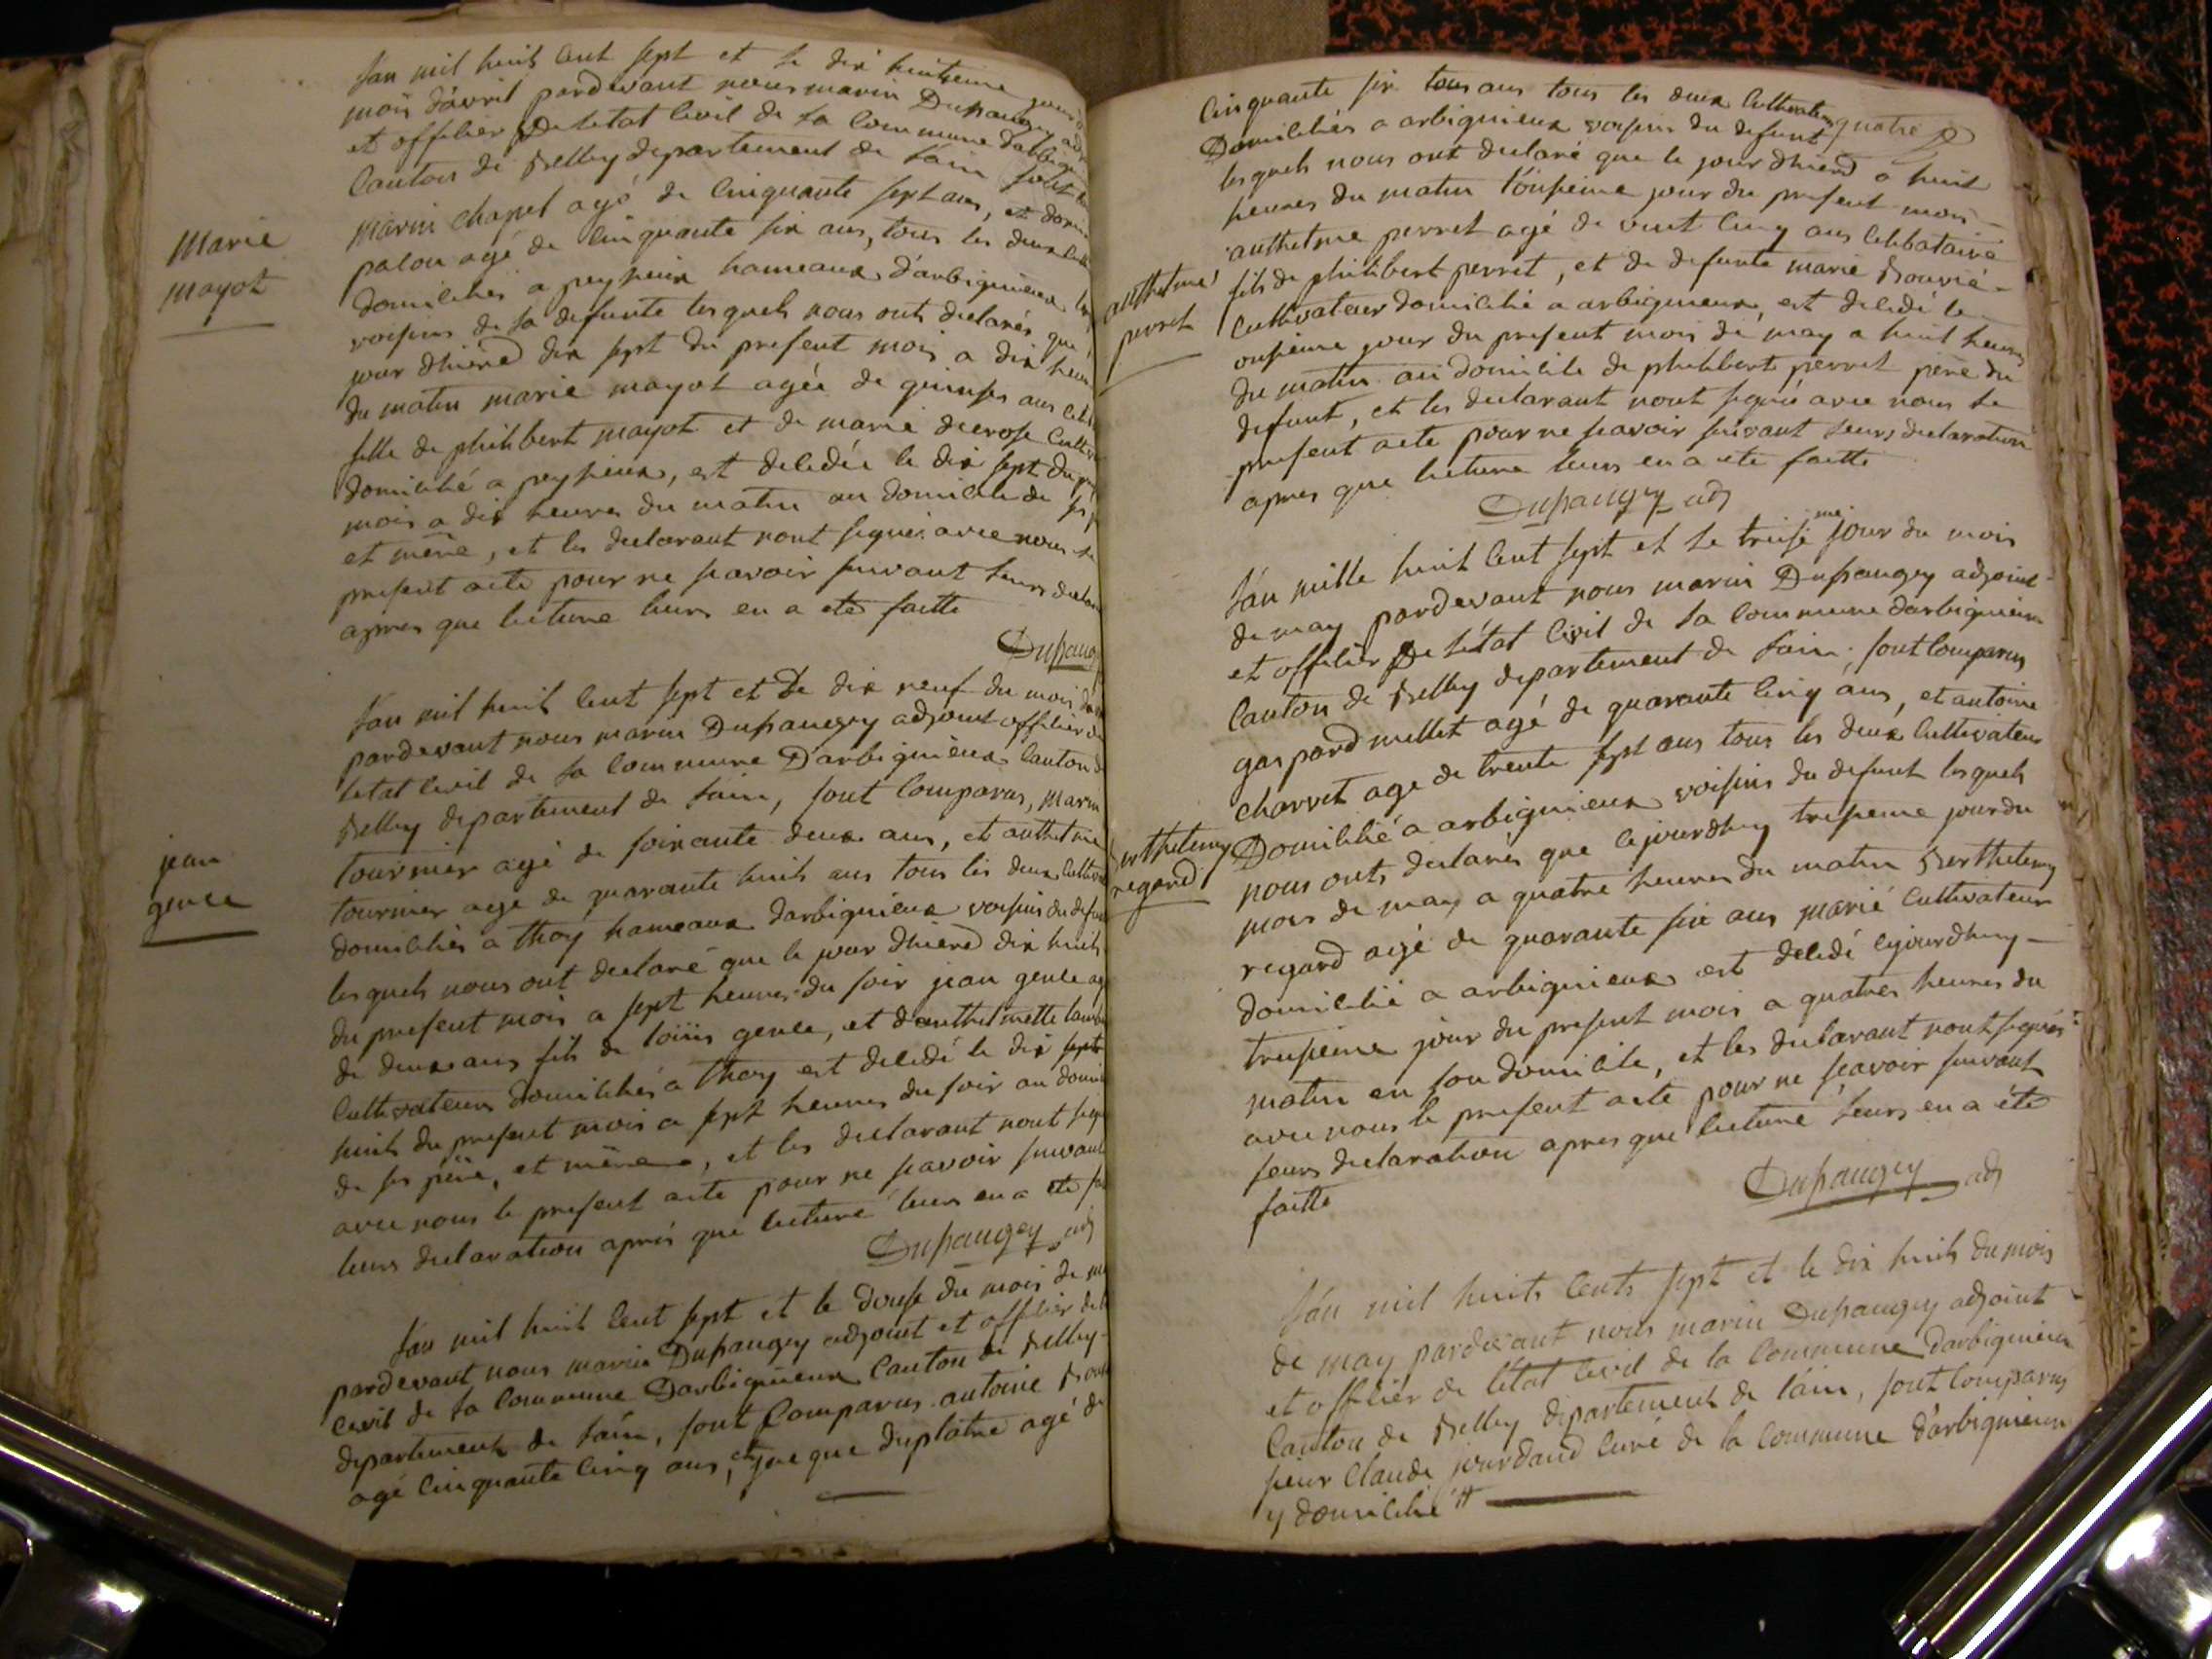 Marie
mayot
jean
gence
L'an mil huit cent sept et le dix huitieme jour
mois d'avril pardevant nous marin Dupaugey adj
et officier de letat civil de la commune darbig
canton de Belley departement de l'ain sont
marin chapel agé de cinquante sept ans, et
palou agé de cinquante six ans, tous les deux
domiciliés a peyzieux hameaux d'arbignieux
voisins de la defunte lesquels nous ont declarés que
jour dhiere dix sept du present mois a dix heu
du matin marie mayot agée de quinses ans
fille de philibert mayot et de marie decrose
domicilié a peyzieux, est decedée le dix sept du
mois a dix heures du matin au domicile de
et mere, et les declarant nont signé avec nous le
present acte pour ne scavoir suivant leurs
apres que lecture leurs en a été faitte
Dupaug
L'an mil huit cent sept et le dix neuf du mois
pardevant nous marin Dupaugey adjoint officier
letat civil de la commune Darbignieux canton
Belley departement de lain, sont comparus, marin
tournier agé de soixante deux ans, et anthelme
tournier age de quarante huit ans tous les deux
domiciliés a thoy hameaux darbignieux voisins du
lesquels nous ont declaré que le jour dhiere dix huit
du present mois a sept heures du soir jean gence
de deux ans fils de loüis gence, et danthelmette
cultivateurs domiciliés a thoy est decedé le dix
huit du present mois a sept heures du soir au
de ses pere, et mere, et les declarant nont
avec nous le present acte pour ne scavoir suivant
leurs declaration aprés que lecture leurs en a été
Dupaugey adj
L'an mil huit cent sept et le douse du mois de
pardevant nous marin Dupaugey adjoint et officier de
civil de la commune Darbignieux canton de Belley
departement de l'ain, sont comparus antoine
agé cinquante cinq ans, et jacque duplatre agé de
cinquante six tous ans tous les deux cultivateurs quatre
Domiciliés a arbignieux voisins du defunt
lesquels nous ont declaré que le jour dhiere a huit
heures du matin l'onsieme jour du present mois
anthelme perret agé de vint cinq ans celibataire
fils de philibert perret, et de defunte marie
cultivateur domicilié a arbignieux, est decedé le
onsieme jour du present mois de may a huit heures
du matin au domicile de philibert perret pere du
defunt, et les declarant nont signé avec nous le
present acte pour ne scavoir suivant leurs declaration
apres que lecture leurs en a été faitte
Dupaugey adj
anthelme
perret
L'an mille huit cent sept et le treiseme jour du mois
de may pardevant nous marin Dupaugey adjoint
et officier de l'état civil de la commune darbignieux
canton de Belley departement de l'ain, sont comparus
gaspard mellet agé de quarante cinq ans, et antoine
charvet age de trente sept ans tous les deux cultivateur
Domicilié a arbignieux voisins du defunt lesquels
nous onts declarés que cejourdhuy tresieme jour du
mois de may a quatre heures du matin Berthelemy
regard agé de quarante six ans marié cultivateur
domicilié a arbignieux est decedé cejourdhuy
tresieme jour du present mois a quatres heures du
matin en son domicile, et les declarant nont signés
avec nous le present acte pour ne scavoir suivant
leurs declaration apres que lecture leurs en a été
faitte
Dupaugey adj
Berthelemy
regard
L'an mil huits cents sept et le dix huit du mois
de may pardevant nous marin Dupaugey adjoint
et officier de l'état civil de la commune darbignieux
canton de Belley departement de l'ain, sont comparus
sieur claude jourdand curé de la commune d'arbignieux
y domicilié #